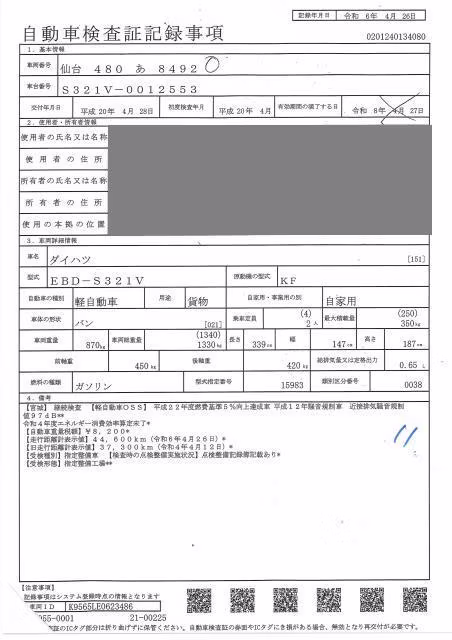 記録年月日 令和 6年 4月 26日
自動車検査証記録事項
0201240134080
1. 基本情報
車両番号 仙台 480 あ 8492
車台番号 S321V-0012553
交付年月日 平成 20年 4月 28日 初度検査年月 平成 20年 4月 有効期間の満了する日 令和 8年 4月 27日
2. 使用者・所有者情報
使用者の氏名又は名称
使用者の住所
所有者の氏名又は名称
所有者の住所
使用の本拠の位置
3. 車両詳細情報
車名 ダイハツ [151]
型式 EBD-S321V 原動機の型式 KF
自動車の種別 軽自動車 用途 貨物 自家用・事業用の別 自家用
車体の形状 バン [021] 乗車定員 (4) 2人 最大積載量 (250) 350kg
車両重量 870kg 車両総重量 (1340) 1330kg 長さ 339cm 幅 147cm 高さ 187cm
前軸重 450kg 後軸重 420kg 総排気量又は定格出力 0.65L
燃料の種類 ガソリン 型式指定番号 15983 類別区分番号 0038
4. 備考
【宮城】 継続検査 【軽自動車OSS】 平成22年度燃費基準5%向上達成車 平成12年騒音規制車 近接排気騒音規制
値97dB**
令和4年度エネルギー消費効率算定未了*
【自動車重量税額】¥8,200*
【走行距離計表示値】44,600km(令和6年4月26日)*
【旧走行距離計表示値】37,300km(令和4年4月12日)*
【受検種別】指定整備車 【検査時の点検整備実施状況】点検整備記録簿記載あり*
【受検形態】指定整備工場**
【注意事項】
記録事項はシステム登録時点の情報となります
車両ID K9565LE0623486
055-0001 21-00225
証のICタグ部分は折り曲げずに保管ください。自動車検査証の券面やICタグにき損がある場合、無効となり再交付が必要です。